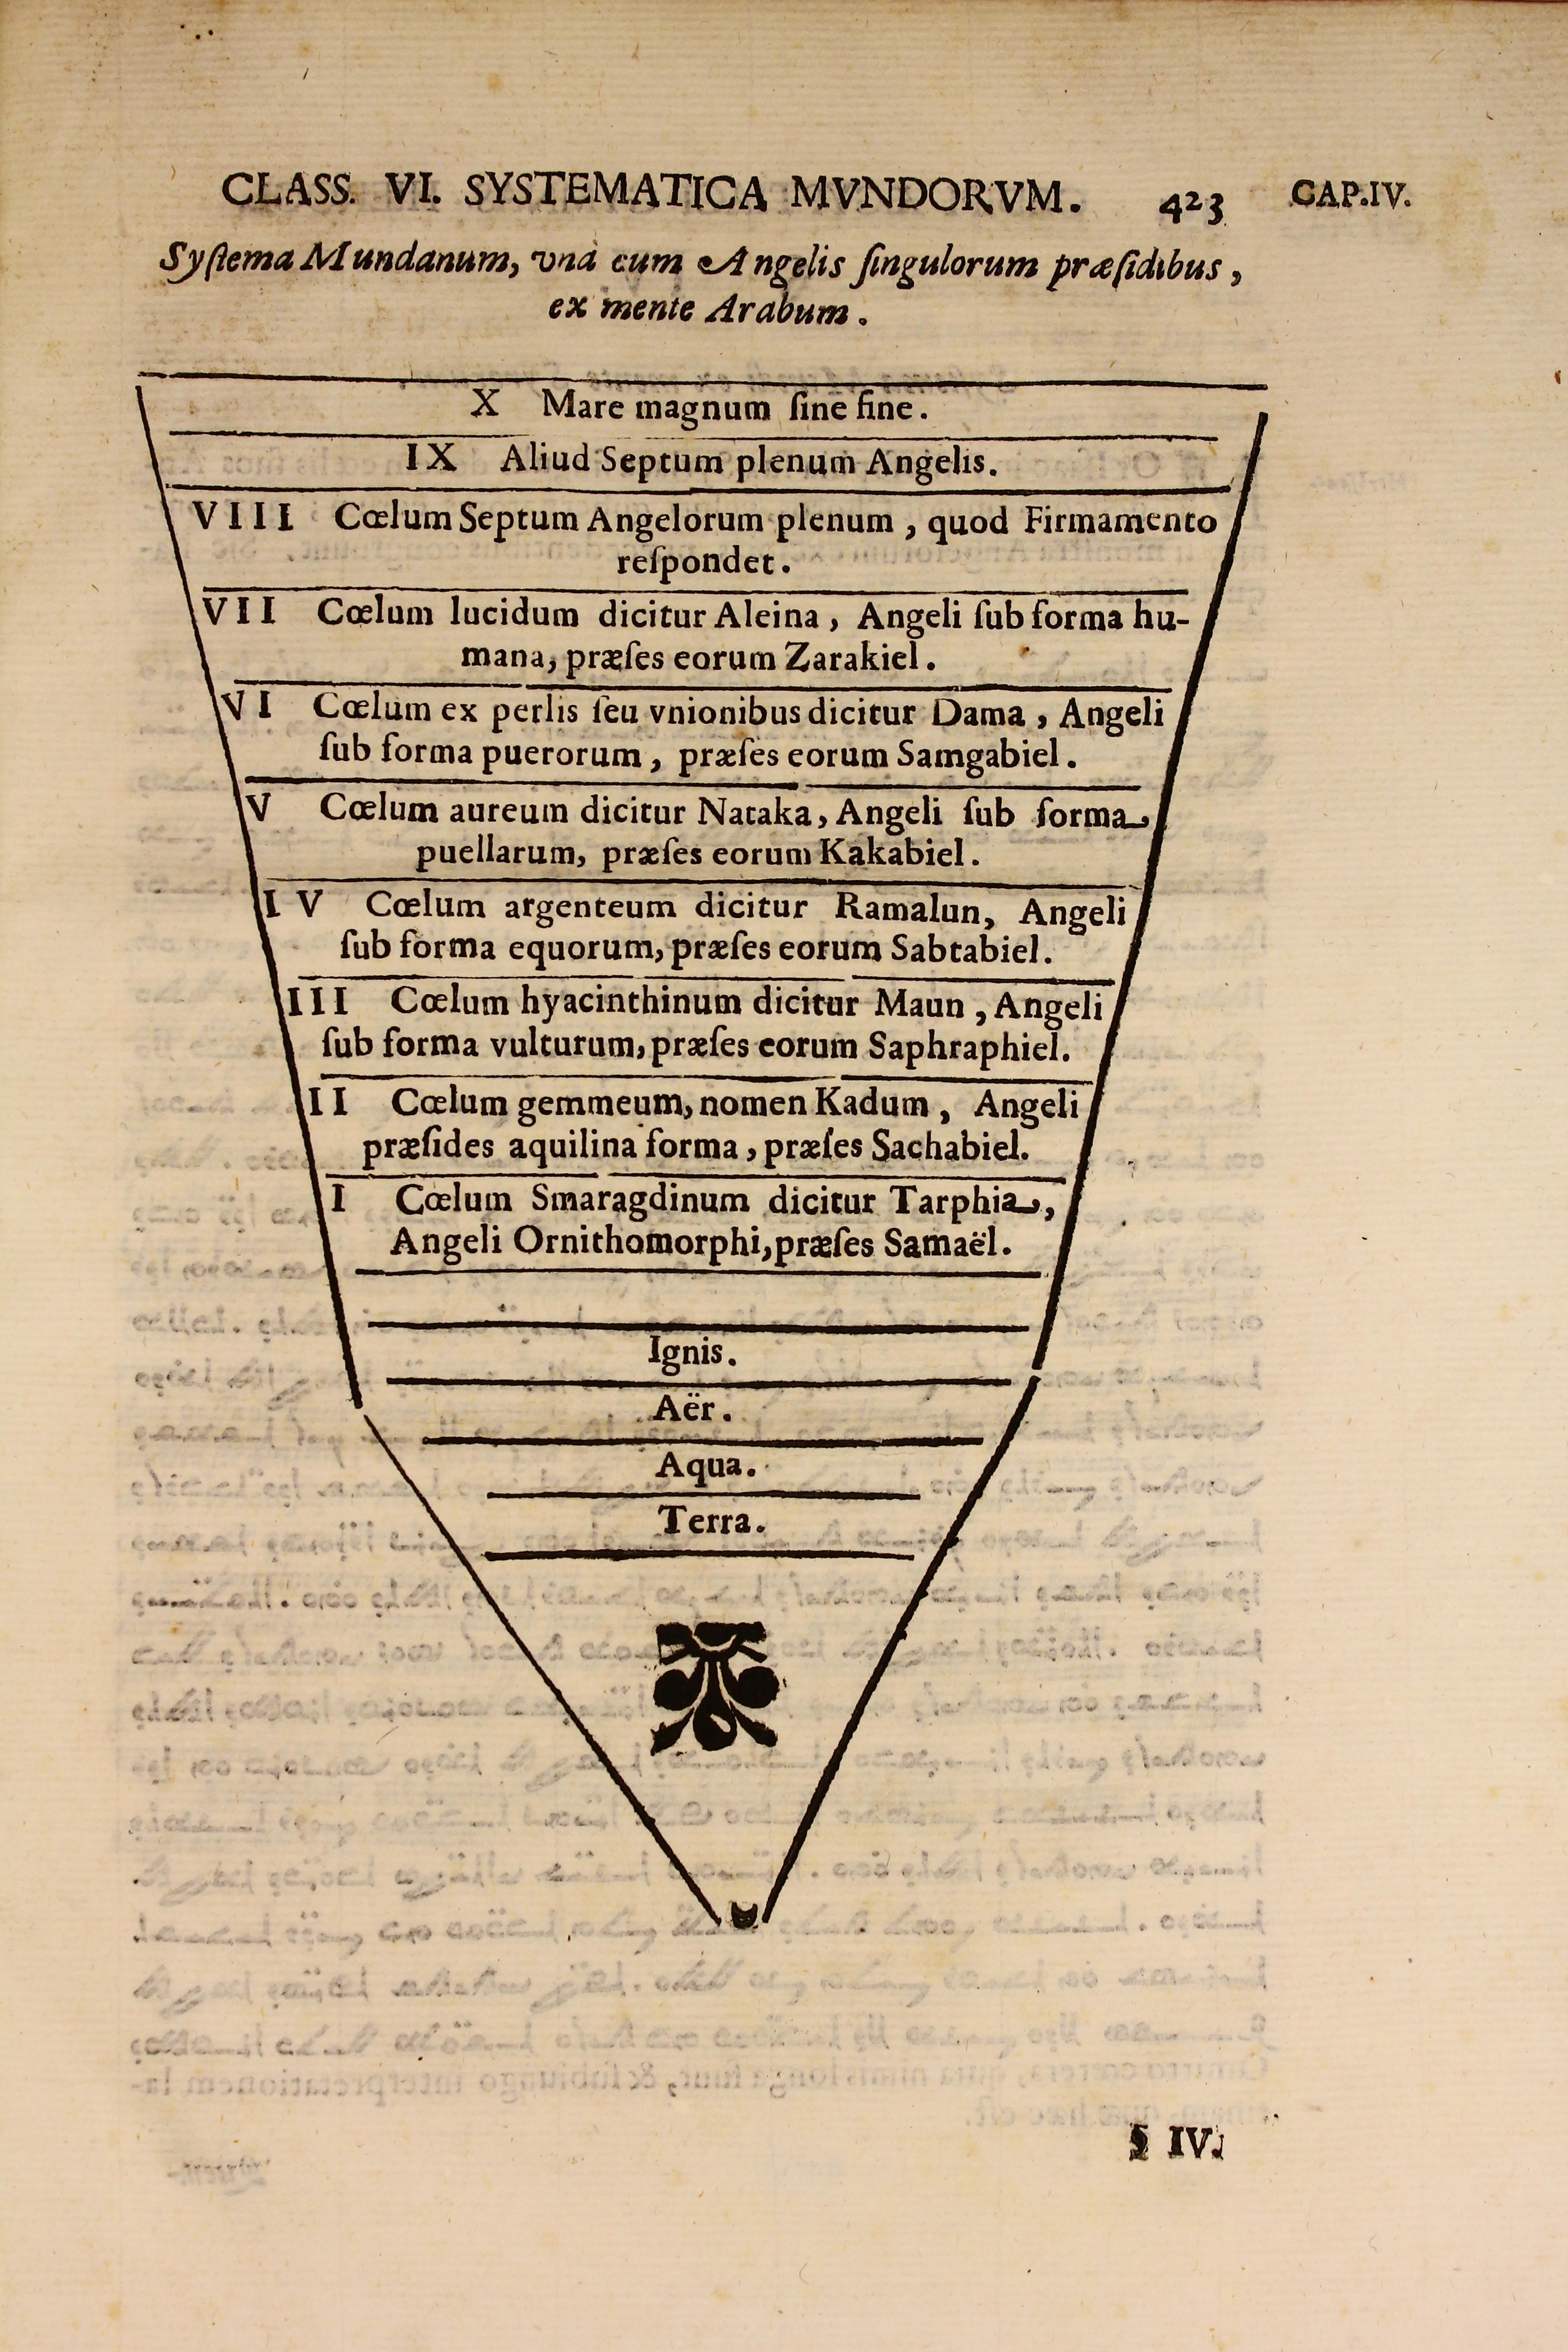 CLASS. VI. SYSTEMATICA MVNDORVM. 423 CAP.IV.
Syſtema Mundanum, vnà cum Angelis ſingulorum præſidibus,
ex mente Arabum.
X Mare magnum ſine fine.
IX Aliud Septum plenum Angelis.
VIII Cœlum Septum Angelorum plenum, quod Firmamento
reſpondet.
VII Cœlum lucidum dicitur Aleina, Angeli ſub forma hu-
mana, præſes eorum Zarakiel.
VI Cœlum ex perlis ſeu vnionibus dicitur Dama, Angeli
ſub forma puerorum, præſes eorum Samgabiel.
V Cœlum aureum dicitur Nataka, Angeli ſub forma
puellarum, præſes eorum Kakabiel.
IV Cœlum argenteum dicitur Ramalun, Angeli
ſub forma equorum, præſes eorum Sabtabiel.
III Cœlum hyacinthinum dicitur Maun, Angeli
ſub forma vulturum, præſes eorum Saphraphiel.
II Cœlum gemmeum, nomen Kadum, Angeli
præſides aquilina forma, præſes Sachabiel.
I Cœlum Smaragdinum dicitur Tarphia,
Angeli Ornithomorphi, præſes Samaël.
Ignis.
Aër.
Aqua.
Terra.
§ IV.